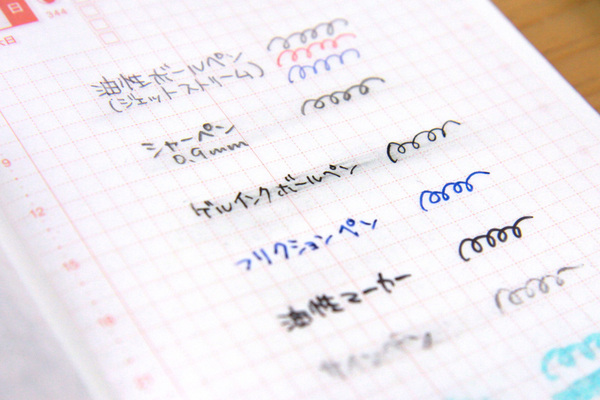 日
344
木日
油性ボールペン
(ジェットストリーム)
シャーペン
0.9mm
9
ゲルインクボールペン
12
フリクションペン
15
油性マーカー
18
21